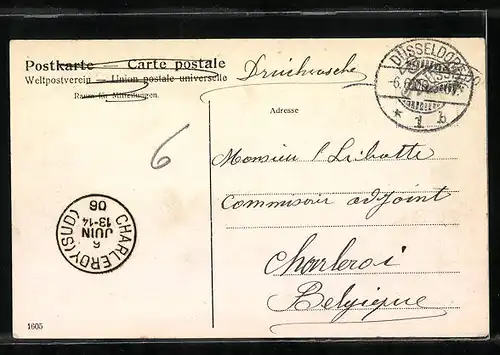 Postkarte — Carte postale
Weltpostverein — Union postale universelle
Raum für Mitteilungen.
Drucksache
Adresse
DÜSSELDORF
* 1 b
6
Monsieur l Libotte
Commissaire adjoint
Charleroi
Belgique
CHARLEROY (SUD)
6
JUIN
13-14
06
1605